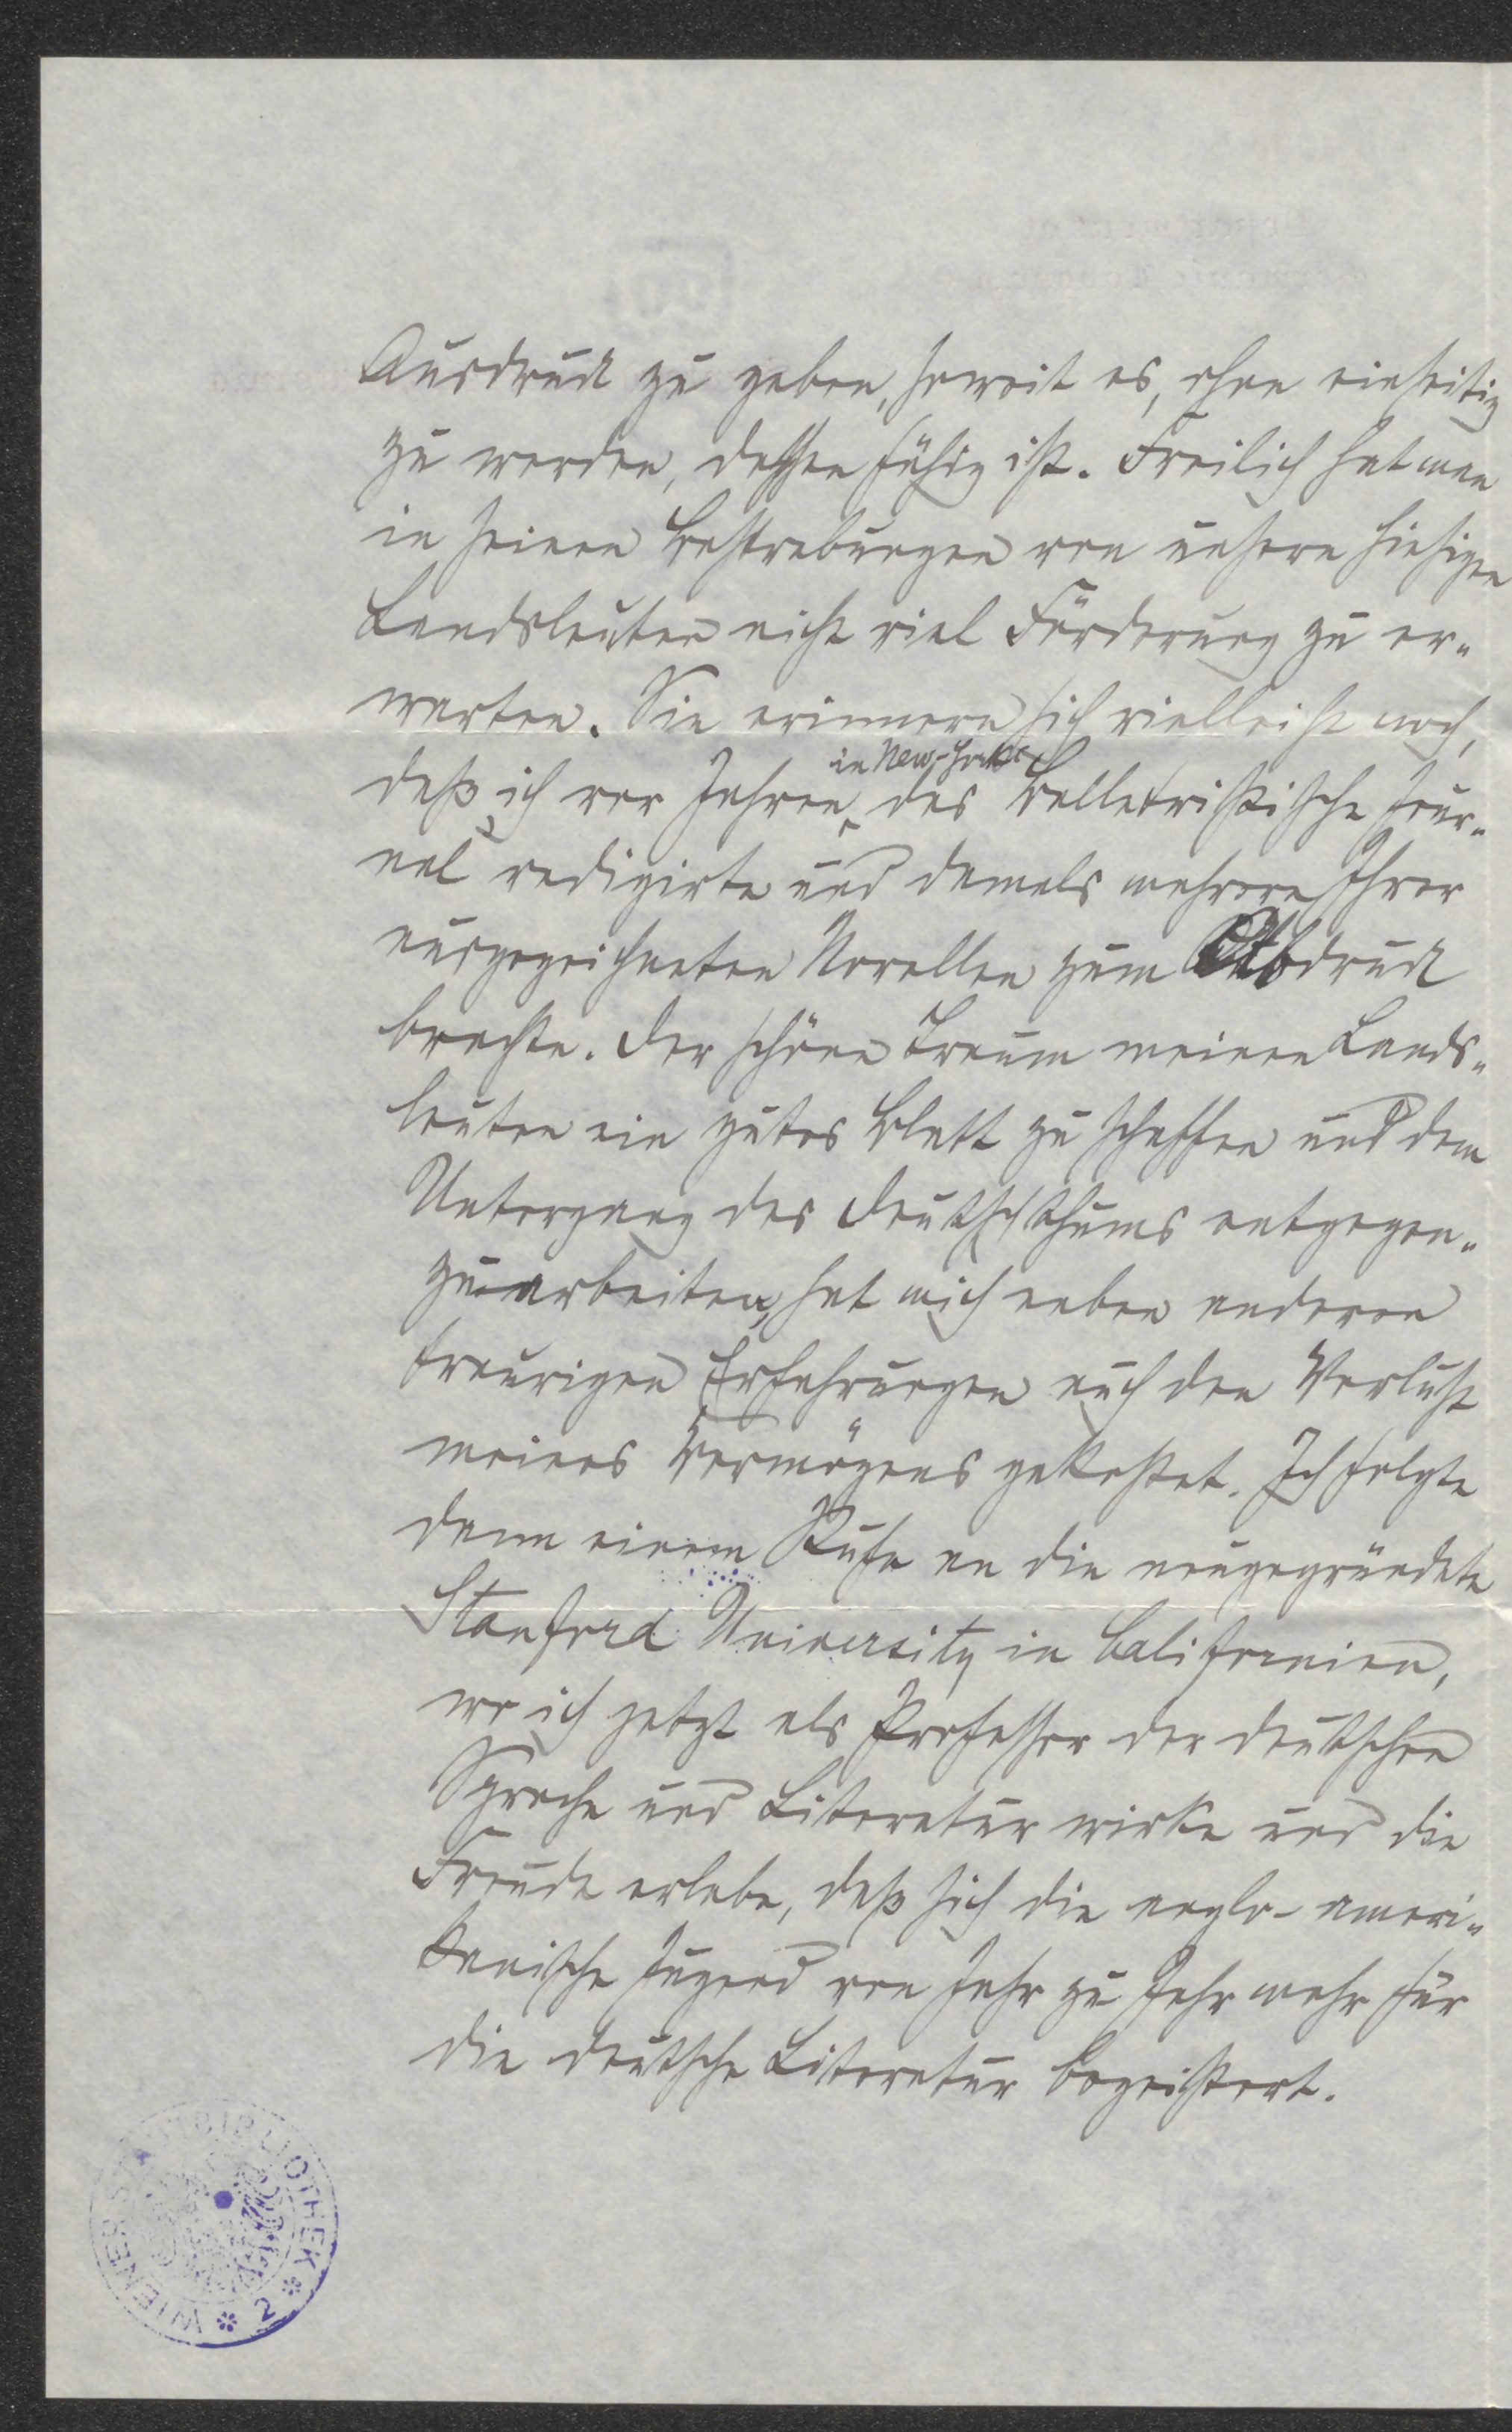 Ausdruck zu geben, soweit es, ohne einseitig
zu werden, dessen fähig ist. Freilich hat man
in seinen Bestrebungen von unsern hiesigen
Landsleuten nicht viel Förderung zu er-
warten. Sie erinnern sich vielleicht noch,
in New-York
daß ich vor Jahren das Belletristische Jour-
nal redigirte und damals mehrere Ihrer
ausgezeichneten Novellen zum Abdruck
brachte. Der schöne Traum meinen Lands-
leuten ein gutes Blatt zu schaffen und dem
Untergang des Deutschthums entgegen-
zuarbeiten, hat mich neben anderen
traurigen Erfahrungen auch den Verlust
meines Vermögens gekostet. Ich folgte
dann einem Rufe an die neugegründete
Stanford University in Californien,
wo ich jetzt als Professor der deutschen
Sprache und Literatur wirke und die
Freude erlebe, daß sich die anglo-ameri-
kanische Jugend von Jahr zu Jahr mehr für
die deutsche Literatur begeistert.
WIENER STADTBIBLIOTHEK * 2 *